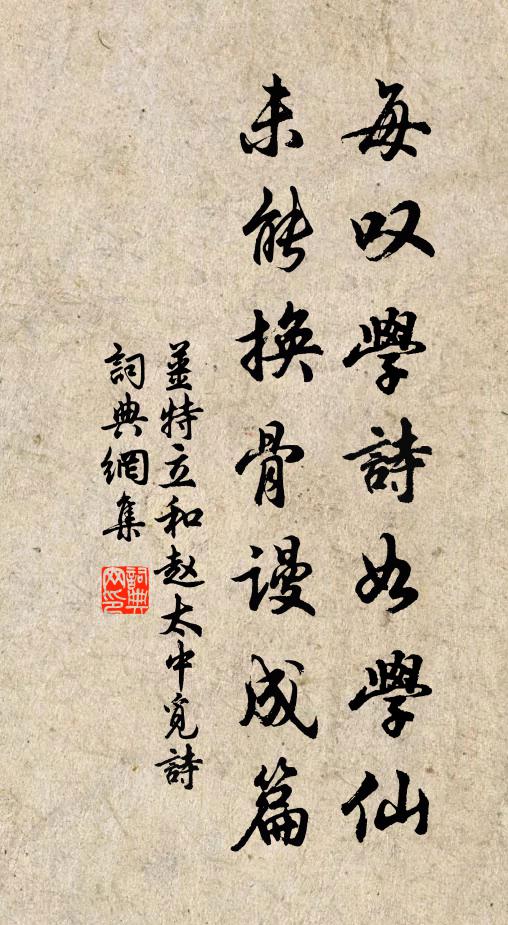 每叹學詩如學仙
未能換骨謾成篇
姜特立和赵太中覓詩
詞典網集
詞典网印